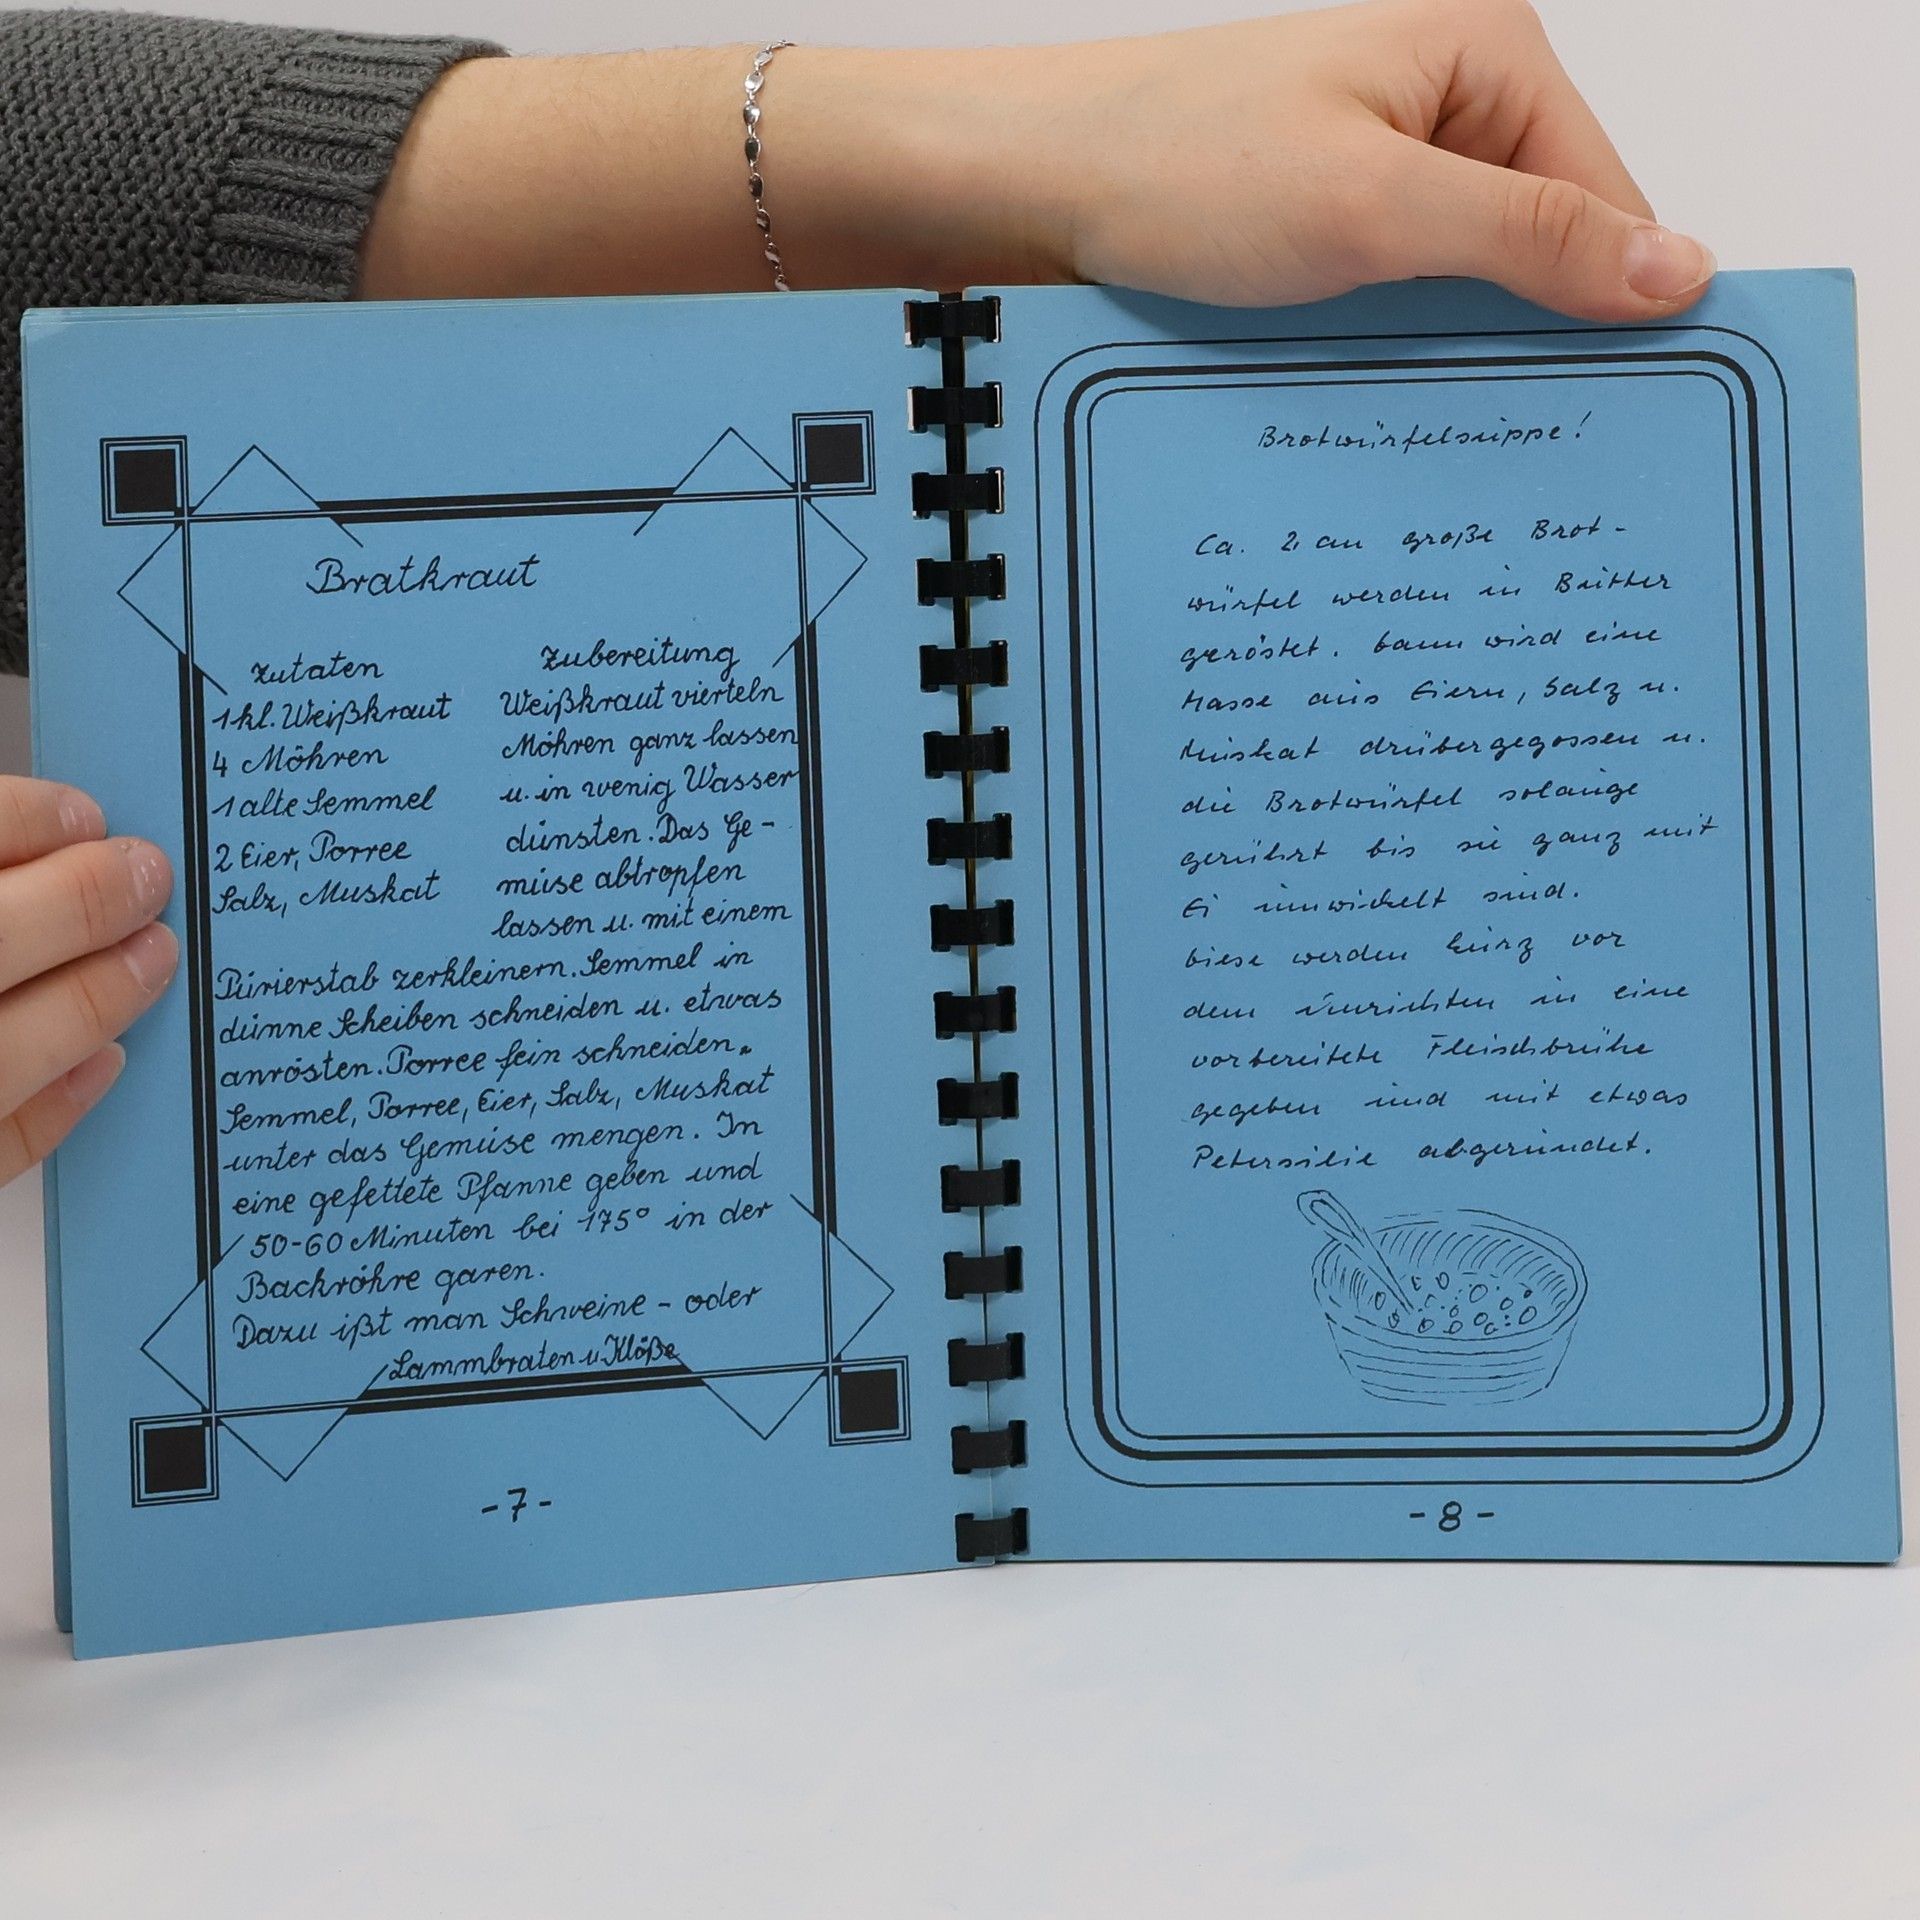 Bratkraut
Zutaten
1 kl. Weißkraut
4 Möhren
1 alte Semmel
2 Eier, Porree
Salz, Muskat
Zubereitung
Weißkraut vierteln
Möhren ganz lassen
u. in wenig Wasser
dünsten. Das Ge-
müse abtropfen
lassen u. mit einem
Pürierstab zerkleinern. Semmel in
dünne Scheiben schneiden u. etwas
anrösten. Porree fein schneiden.
Semmel, Porree, Eier, Salz, Muskat
unter das Gemüse mengen. In
eine gefettete Pfanne geben und
50-60 Minuten bei 175° in der
Backröhre garen.
Dazu ißt man Schweine- oder
Lammbraten u. Klöße
-7-
Brotwürfelsuppe!
Ca. 2 cm große Brot-
würfel werden in Butter
geröstet. Dann wird eine
Masse aus Eiern, Salz u.
Muskat drübergegossen u.
die Brotwürfel solange
gerührt bis sie ganz mit
Ei umwickelt sind.
Diese werden kurz vor
dem Anrichten in eine
vorbereitete Fleischbrühe
gegeben und mit etwas
Petersilie abgerundet.
-8-